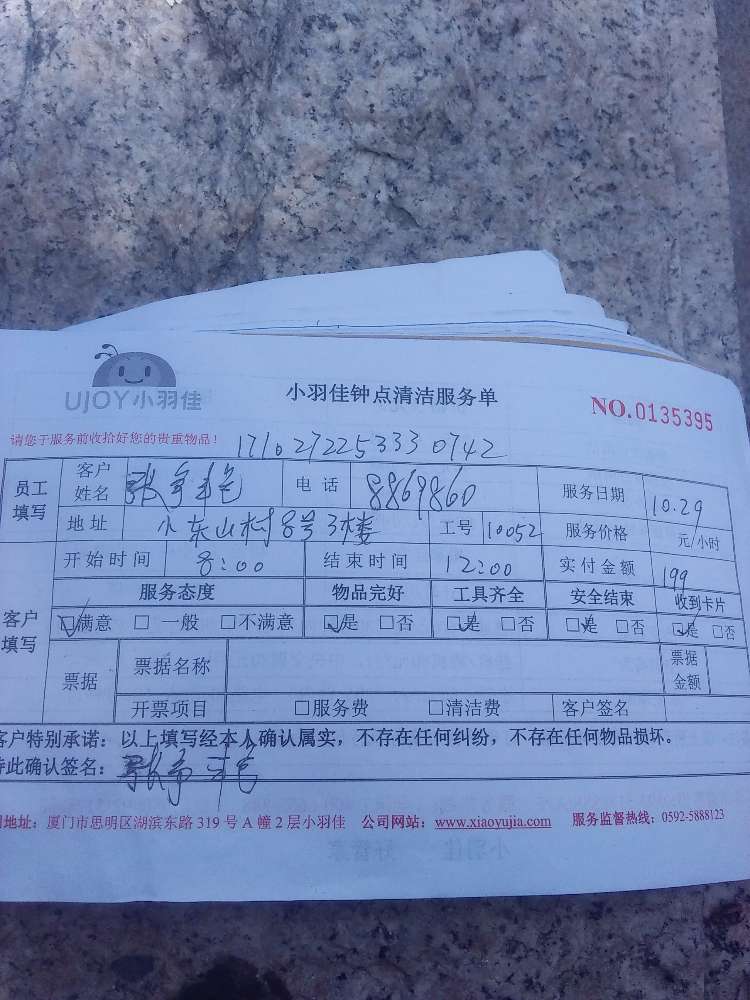 UJOY小羽佳
小羽佳钟点清洁服务单
NO.0135395
请您于服务前收拾好您的贵重物品！
171027225333 0742
员工填写 客户姓名 张 电话 8869860 服务日期 10.29
地址 小东山村8号3楼 工号 10052 服务价格 元/小时
开始时间 8:00 结束时间 12:00 实付金额 199
客户填写 服务态度 物品完好 工具齐全 安全结束 收到卡片
☑满意 □一般 □不满意 ☑是 □否 ☑是 □否 ☑是 □否 ☑是 □否
票据 票据名称 票据金额
开票项目 □服务费 □清洁费 客户签名
客户特别承诺：以上填写经本人确认属实，不存在任何纠纷，不存在任何物品损坏。
特此确认签名： 张
地址：厦门市思明区湖滨东路 319 号 A 幢 2 层小羽佳 公司网站：www.xiaoyujia.com 服务监督热线：0592-5888123